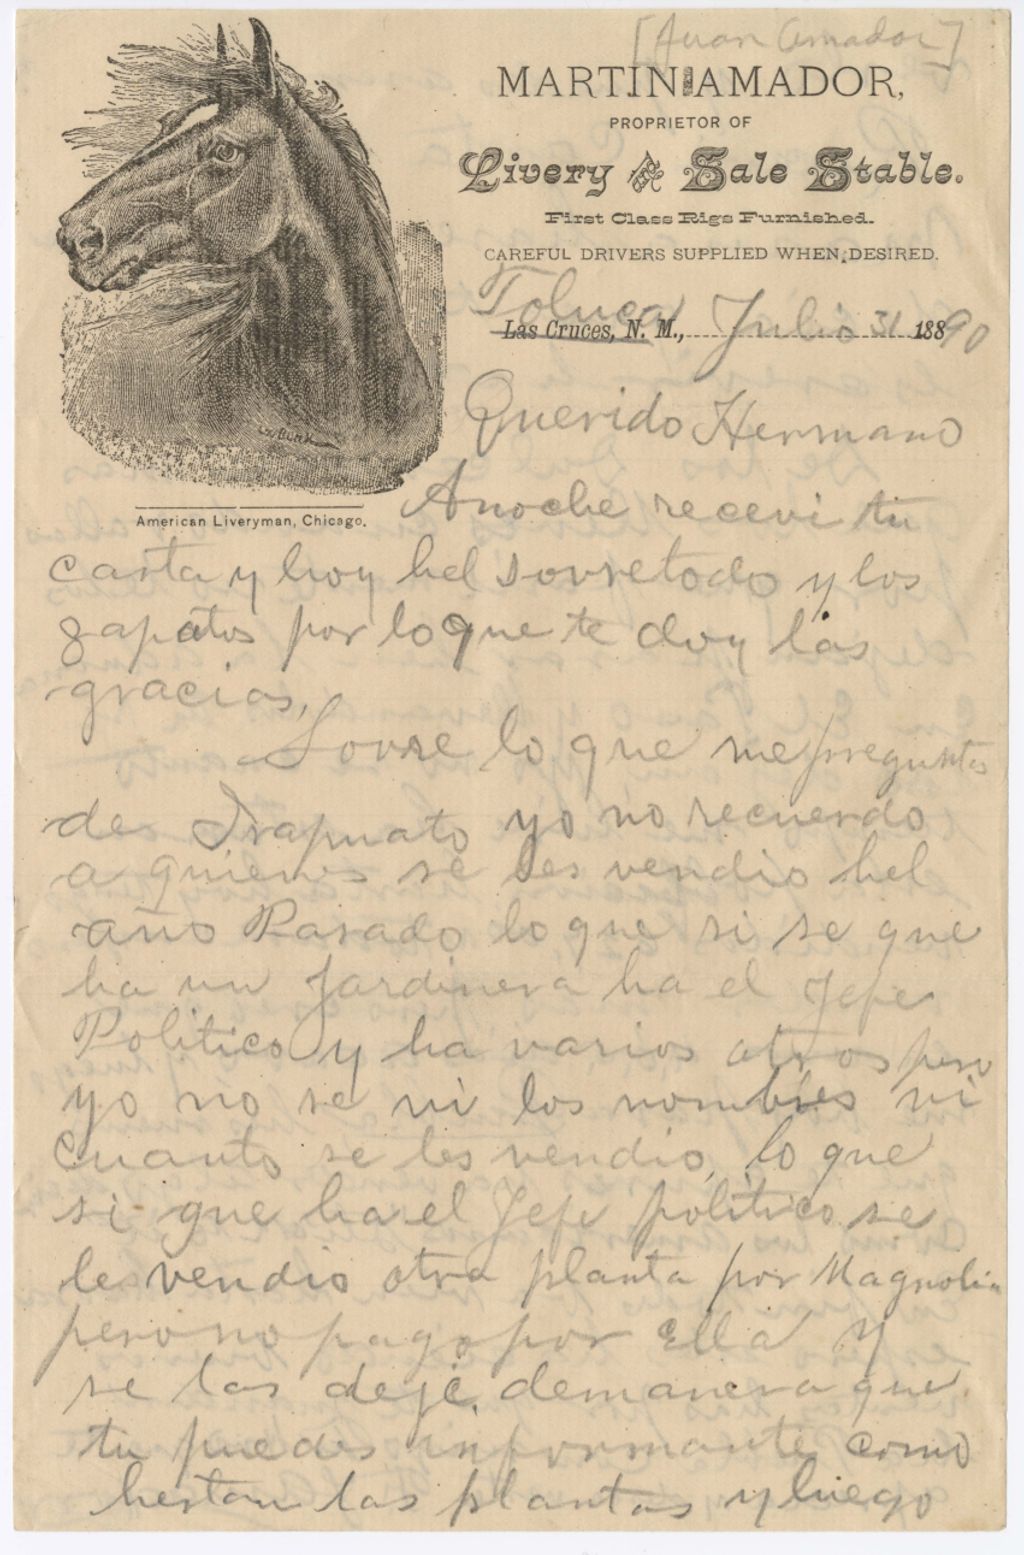 [Juan Amador]
MARTIN AMADOR,
PROPRIETOR OF
Livery & Sale Stable.
First Class Rigs Furnished.
CAREFUL DRIVERS SUPPLIED WHEN DESIRED.
Toluca Julio 31 90
Las Cruces, N. M., 188
American Liveryman, Chicago.
Querido Hermano
Anoche recevi tu
carta y hoy hel sovretodo y los
zapatos por lo que te doy las
gracias,
Sovre lo que me preguntas
de Irapuato yo no recuerdo
a quienes se les vendio hel
año Pasado lo que si se que
ha un Jardinera ha el Jefe
Politico y ha varios otros pero
yo no se ni los nombres ni
cuanto se les vendio, lo que
si que ha el Jefe politico se
le vendio otra planta por Magnolia
pero no pago por ella y
se las deje, demanera que
tu puedes informarte como
hestan las plantas y luego